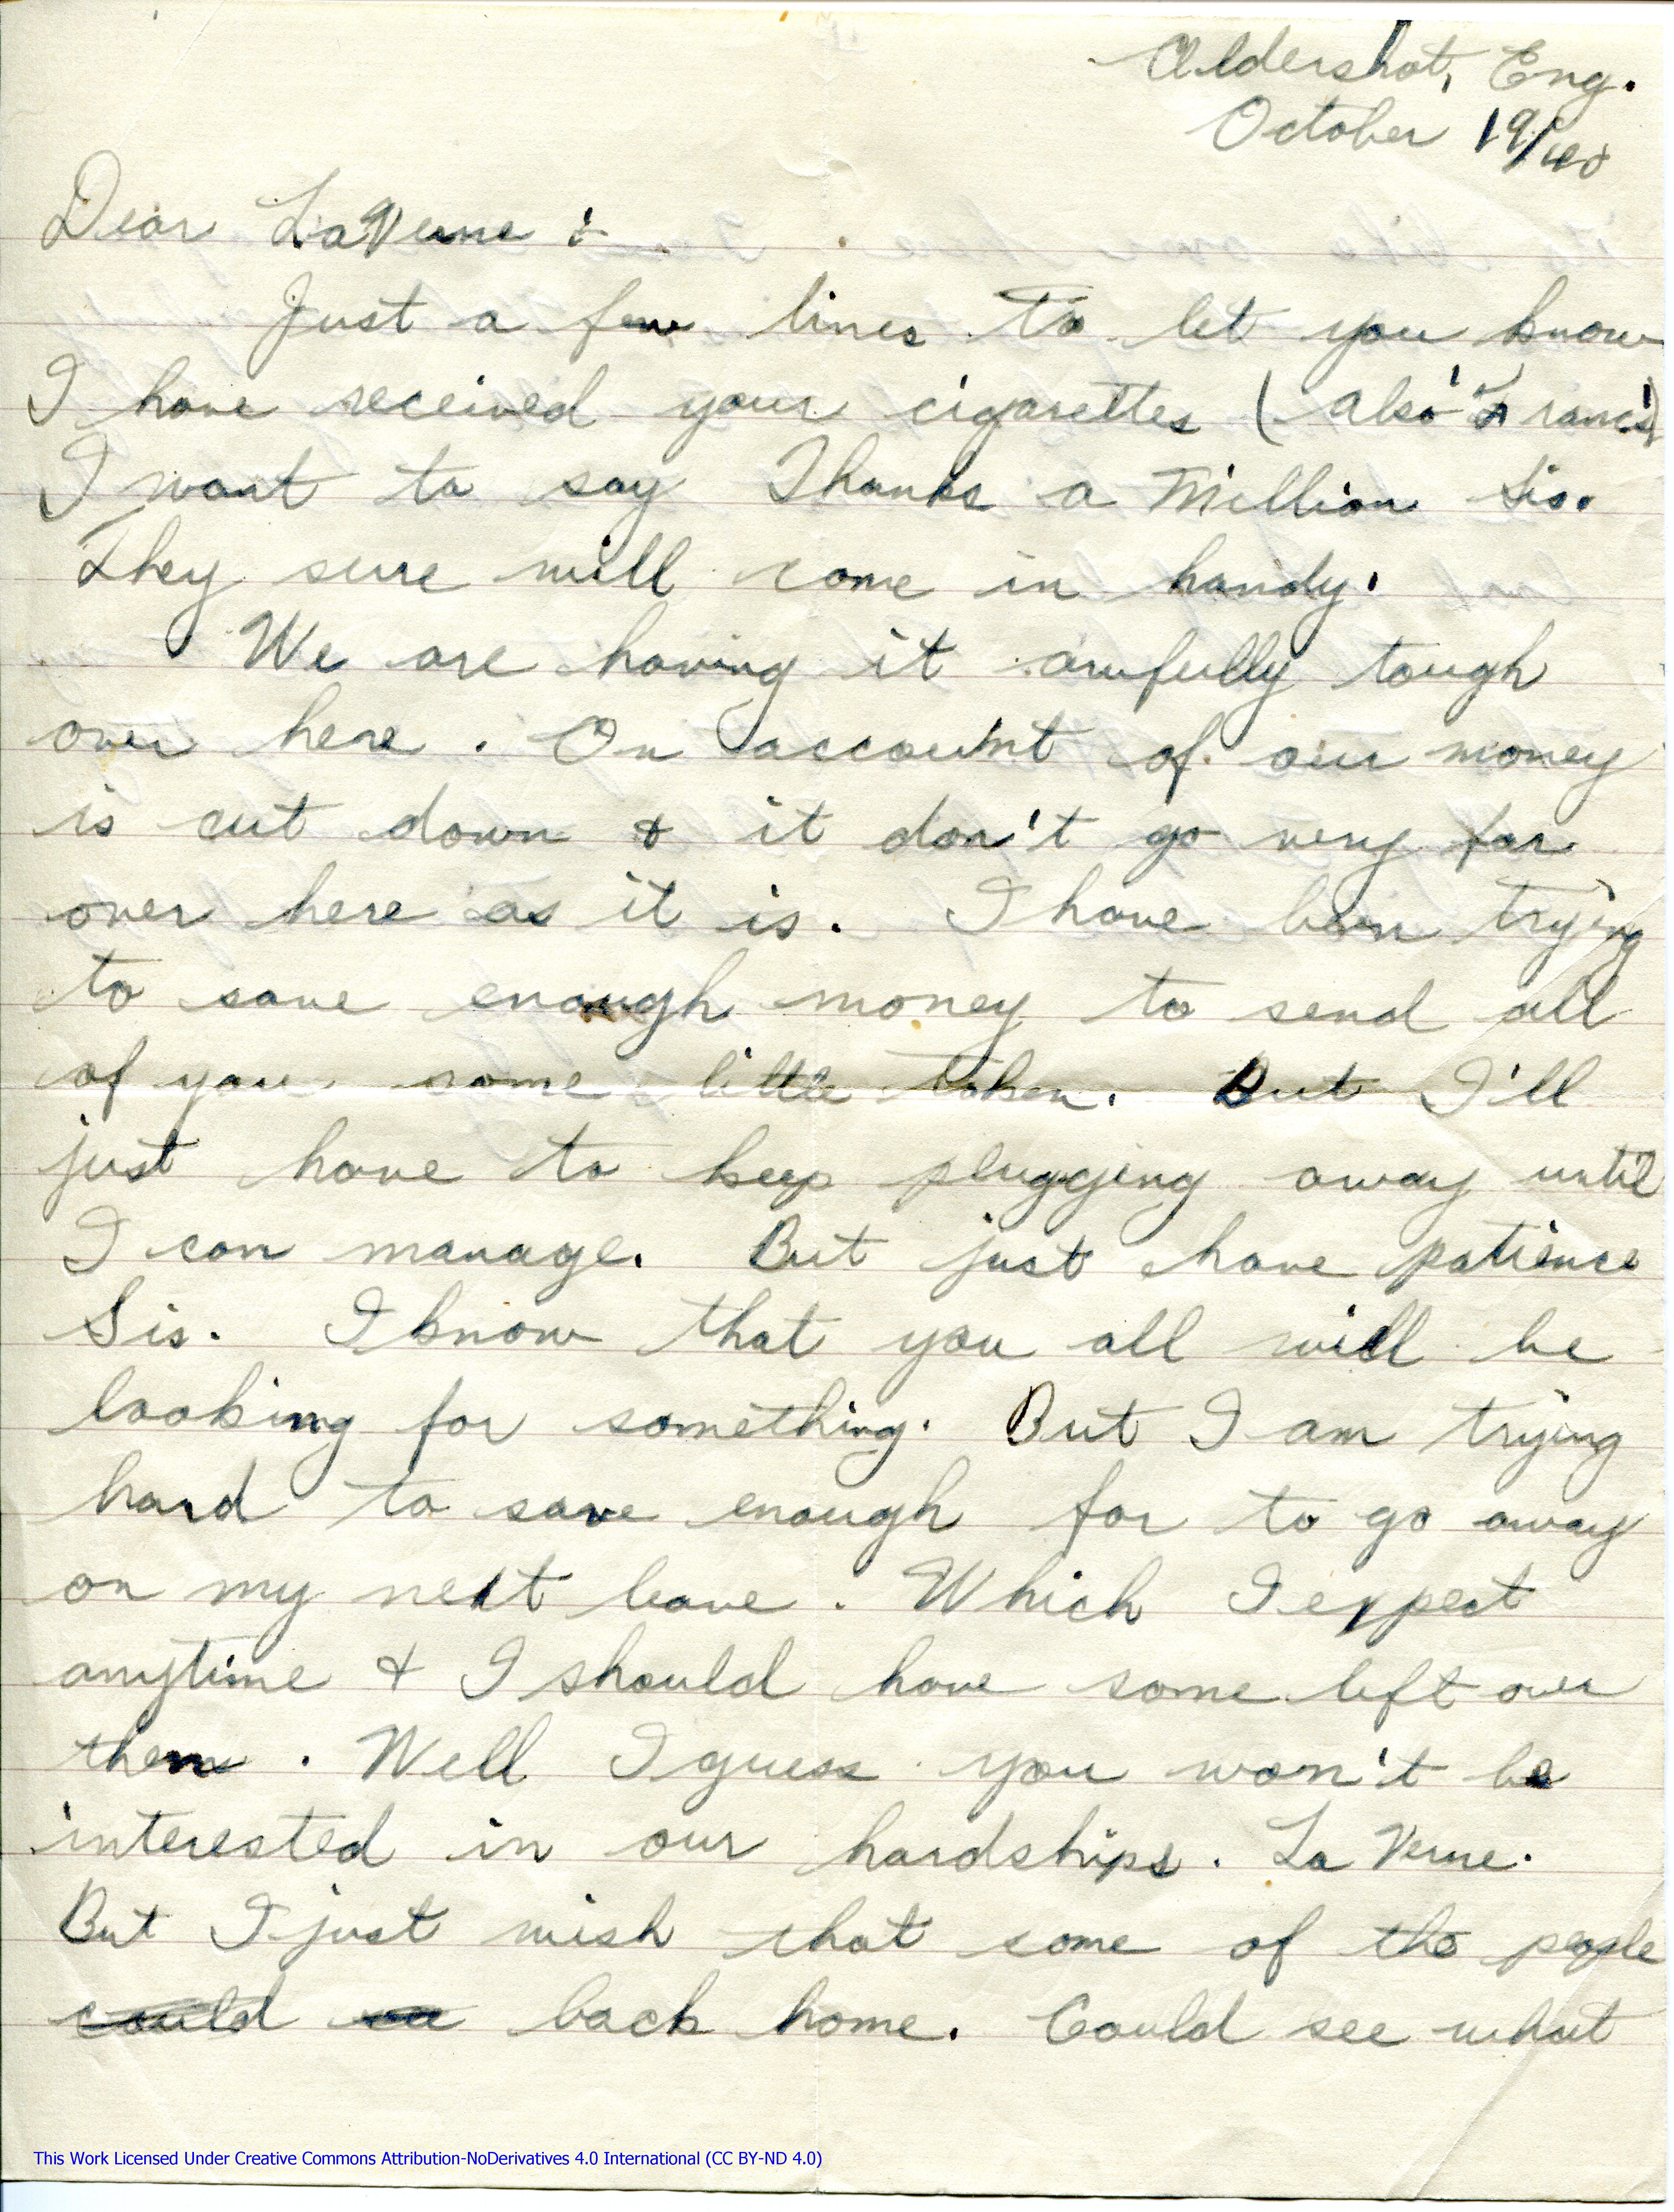 Aldershot, Eng.
October 19/40
Dear LaVerne :-
Just a few lines to let you know
I have received your cigarettes (also Franc's)
I want to say Thanks a Million Sis.
They sure will come in handy.
We are having it awfully tough
over here. On account of our money
is cut down & it don't go very far
over here as it is. I have been trying
to save enough money to send all
of you some little token. But I'll
just have to keep plugging away until
I can manage. But just have patience
Sis. I know that you all will be
looking for something. But I am trying
hard to save enough for to go away
on my next leave. Which I expect
anytime & I should have some left over
then. Well I guess you won't be
interested in our hardships. La Verne.
But I just wish that some of the people
could back home. Could see what
This Work Licensed Under Creative Commons Attribution-NoDerivatives 4.0 International (CC BY-ND 4.0)